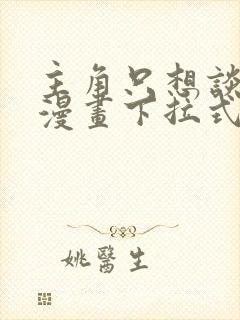 主角只想談
漫畫下拉式
姚醫生